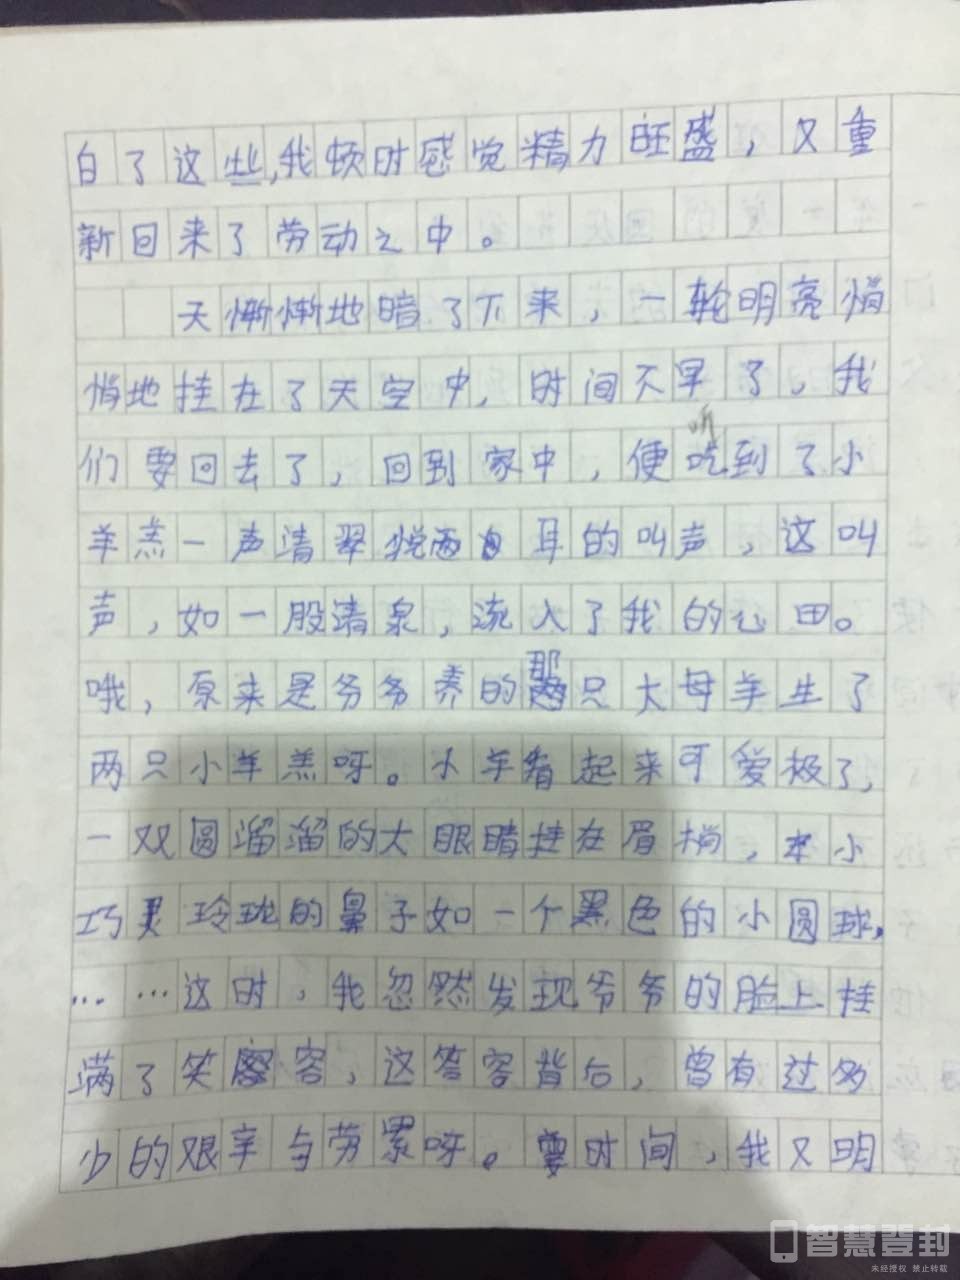 白了这些,我顿时感觉精力旺盛，又重
新回来了劳动之中。
天惭惭地暗了下来，一轮明亮悄
悄地挂在了天空中，时间不早了，我
们要回去了，回到家中，便听到了小
羊羔一声清翠悦耳的叫声，这叫
声，如一股清泉，流入了我的心田。
哦，原来是爷爷养的那只大母羊生了
两只小羊羔呀。小羊看起来可爱极了，
一双圆溜溜的大眼睛挂在眉梢，小
巧灵玲珑的鼻子如一个黑色的小圆球，
……这时，我忽然发现爷爷的脸上挂
满了笑容，这答容背后，曾有过多
少的艰辛与劳累呀。霎时间，我又明
智慧登封
未经授权 禁止转载